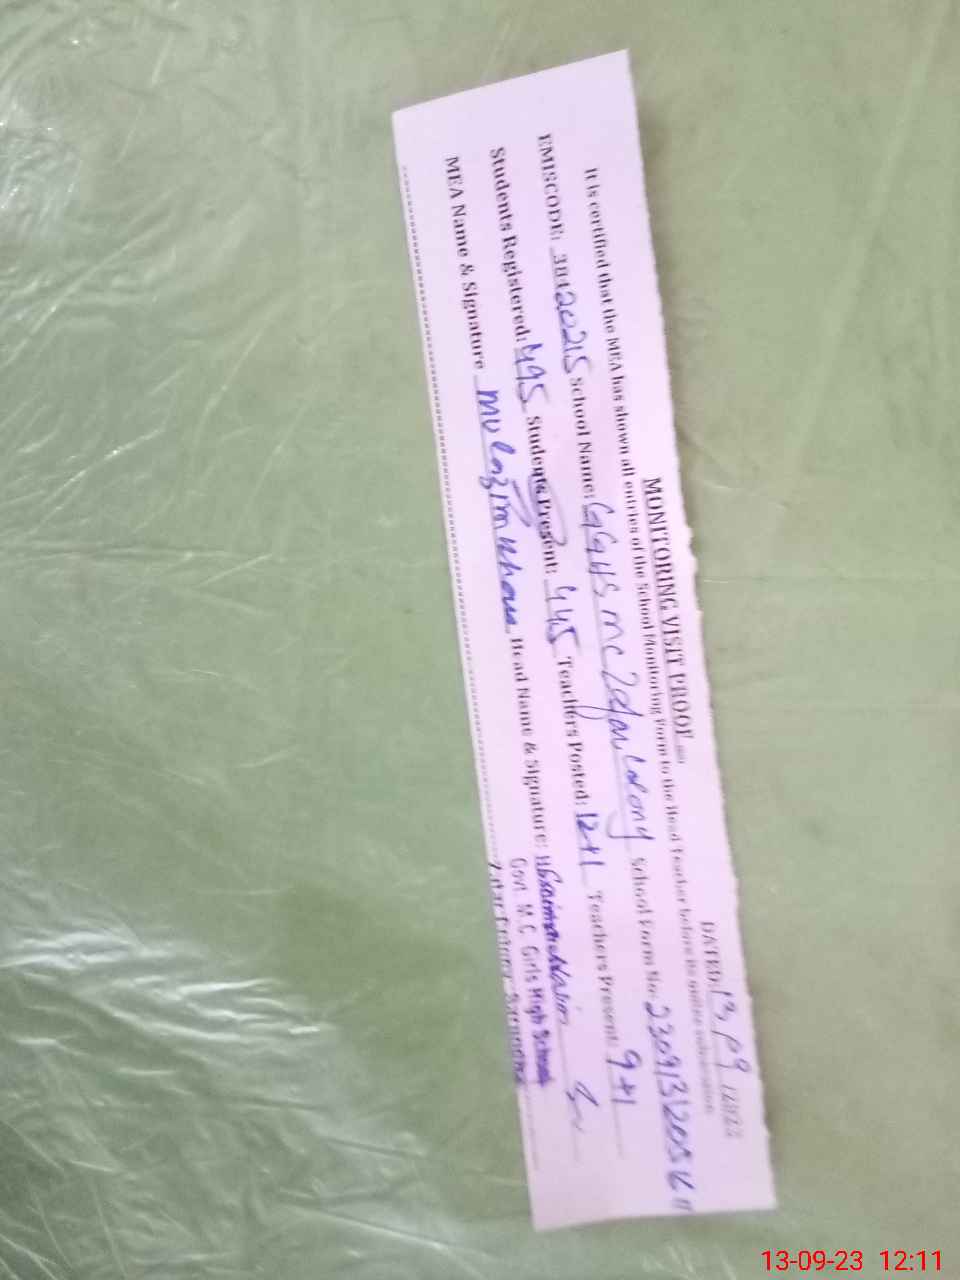 MONITORING VISIT PROOF
DATED: 13/09/2023
It is certified that the MEA has shown all entries of the School Monitoring Form to the Head Teacher before
EMISCODE: 38420215 School Name: GGHS mc Colony School Form No: 230913120
Students Registered: 495 Students Present: 445 Teachers Posted: 12+1 Teachers Present: 9+1
MEA Name & Signature mulazim Head Name & Signature:
Govt. M.C. Girls High School
13-09-23 12:11